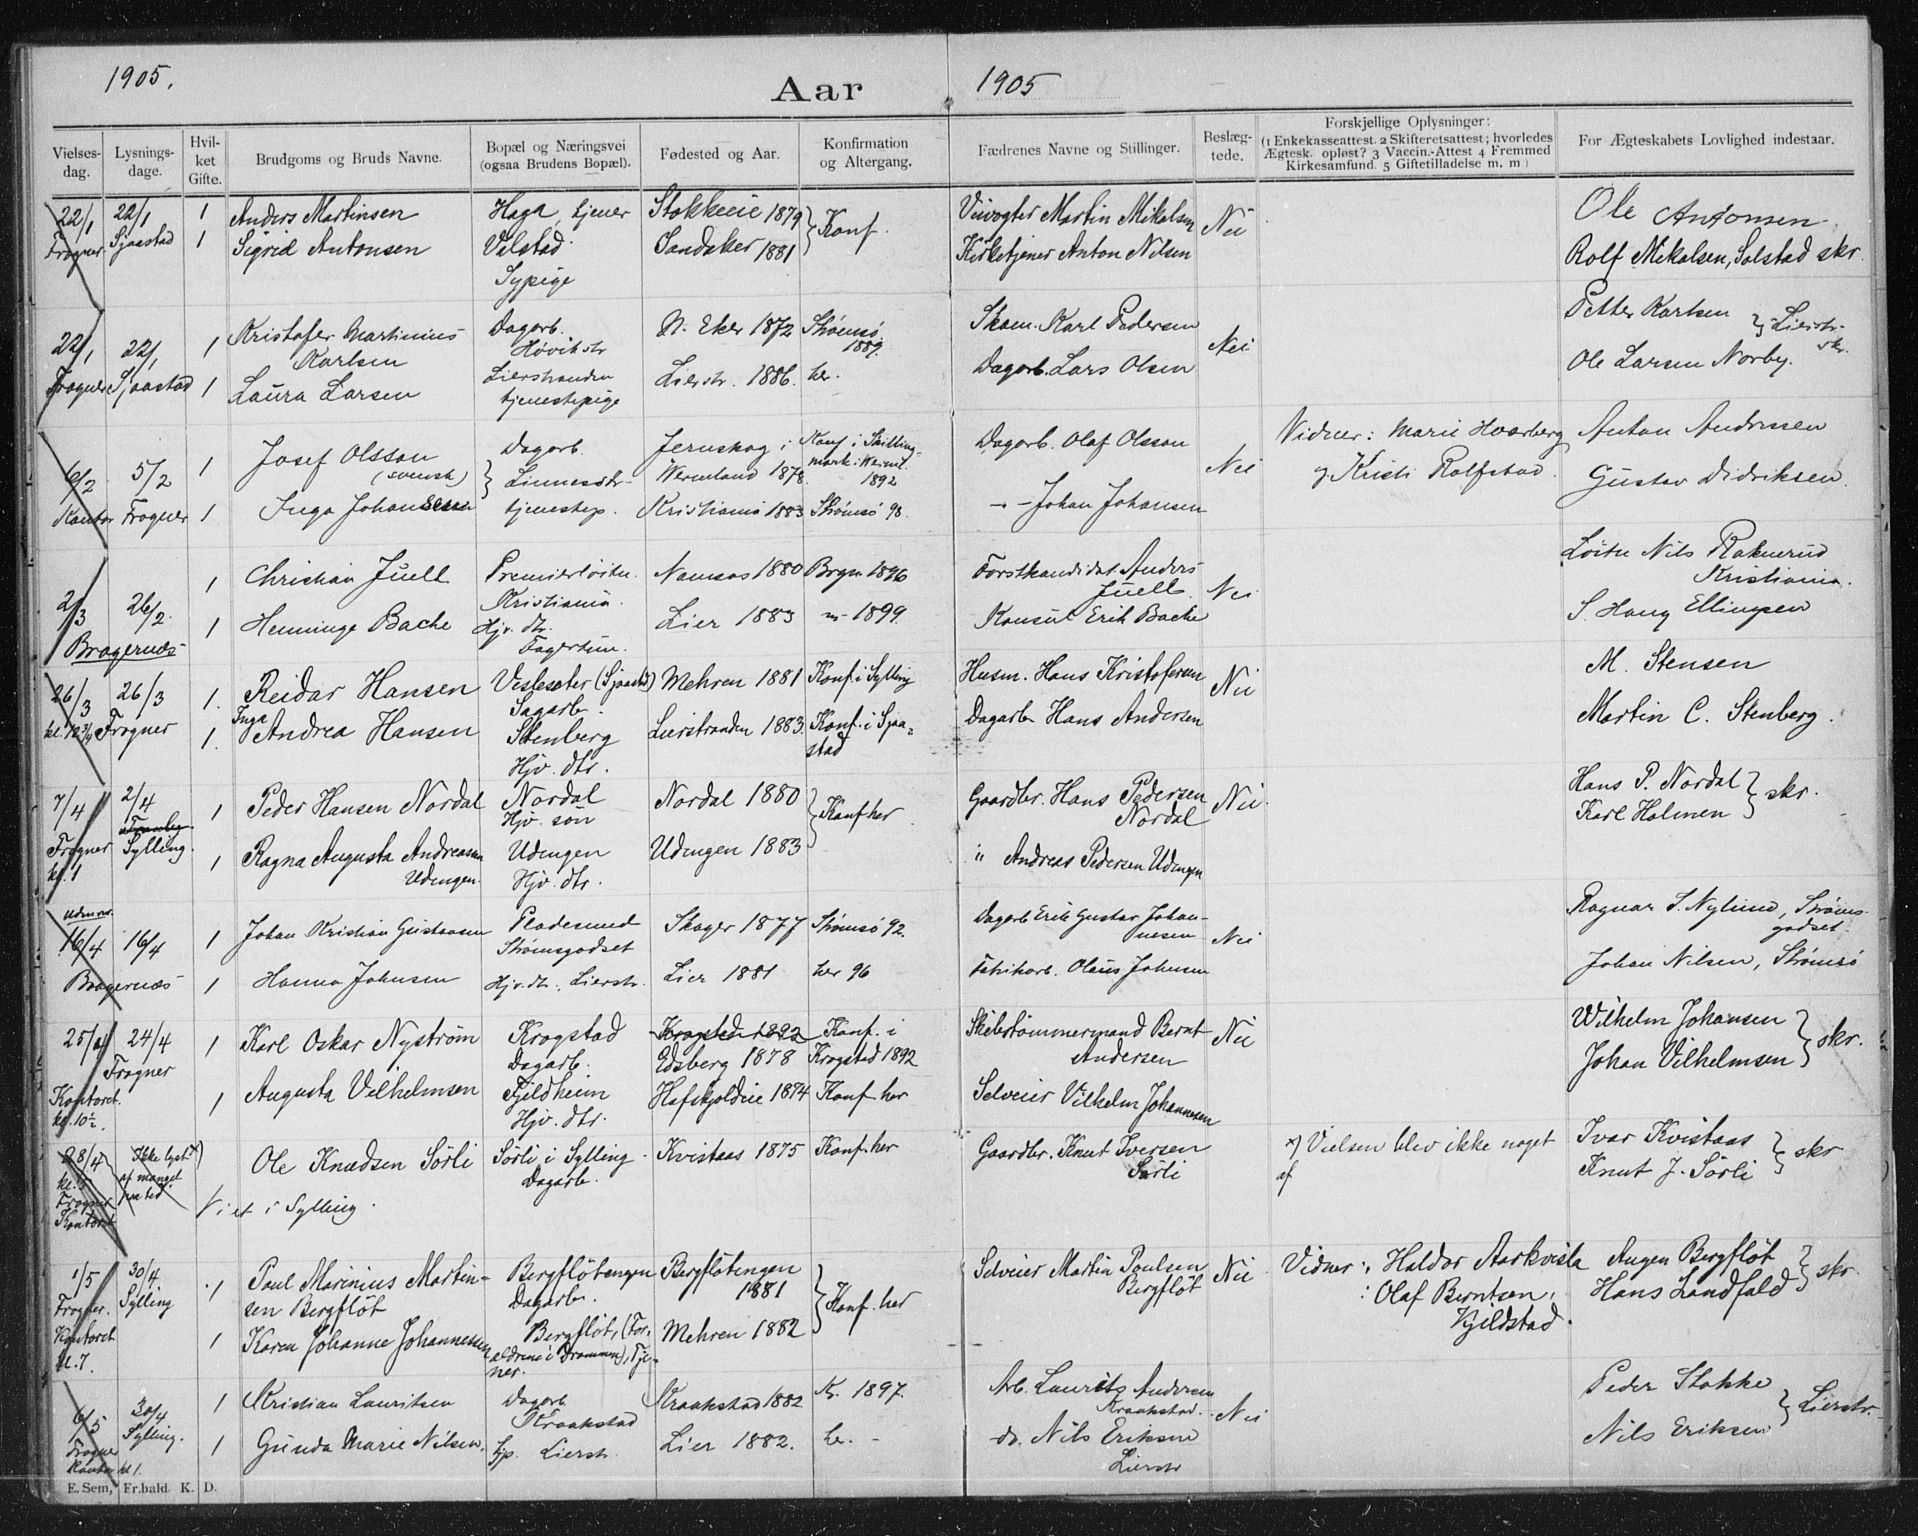 1905.
Aar
1905
Vielses-
dag.
Lysnings-
dage.
Hvil-
ket
Gifte.
Brudgoms og Bruds Navne.
Bopæl og Næringsvei
(ogsaa Brudens Bopæl).
Fødested og Aar.
Konfirmation
og Altergang.
Fædrenes Navne og Stillinger.
Beslæg-
tede.
Forskjellige Oplysninger:
(1 Enkekasseattest. 2 Skifteretsattest; hvorledes
Ægtesk. opløst? 3 Vaccin.-Attest 4 Fremmed
Kirkesamfund. 5 Giftetilladelse m. m)
For Ægteskabets Lovlighed indestaar.
22/1 22/1 1 Anders Martinsen Haga, tjener Stokkeeie 1879 } Konf. Veivogter Martin Mikalsen Nei Ole Antonsen
Frogner Sjaastad 1 Sigrid Antonsen Velstad Sandaker 1881 Kirketjener Anton Nilsen Rolf Mikalsen, Solstad skr.
Sypige
22/1 22/1 1 Kristofer Martinius Dagarb. N. Eker 1872 Strømsø Skom. Karl Pedersen Nei Petter Karlsen } Lierstr.
Karlsen Høvikstr 1887. skr.
Frogner Sjaastad 1 Laura Larsen Lierstranden Lierstr. 1886. her. Dagarb. Lars Olsen Ole Larsen Norby.
tjenestepige
6/2 5/2 1 Josef Olsson Dagarb. Jernskog i Konf. i Skilling- Dagarb. Olaf Olsson Nei Vidner: Marie Hvarberg Anton Andresen
(svensk) } Linnesstr. Wermland 1878. mark i Werml. og Kristi Rolfstad. Gustav Didriksen.
1892
Kontor Frogner 1 Inga Johansen tjenestep. Kristiania 1883 Strømsø 98. - - Johan Johansen
2/3 26/2. 1 Christian Juell Premierløitn. Namsos 1880 Brgn 1896 Forstkandidat Anders Nei Løitn Nils Raknerud
Kristiania. Juell. Kristiania.
Bragernæs 1 Henninge Bache Hjv. dtr. Lier 1883 " 1899. Konsul Erik Bache S. Haug Ellingsen
Fagertun.
26/3 26/3 1. Reidar Hansen Veslesæter (Sjaastad) Mehren 1881 Konf. i Sylling Husm. Hans Kristofersen Nei M. Stensen
Sagarb.
kl. 12 3/4 Frogner 1. Inga Andrea Hansen Stenberg Lierstranden 1883. Konf. i Sjaa= Dagarb. Hans Andersen Martin C. Stenberg.
Hjv. dtr. stad
7/4 2/4 1 Peder Hansen Nordal Nordal Nordal 1880 } Konf. her Gaardbr. Hans Pedersen Nei Hans P. Nordal } skr.
Hjv. søn Nordal Karl Holmen
Frogner Sylling. 1 Ragna Augusta Andreasen Udengen Udengen 1883 " Andreas Pedersen Udengen
kl. 1 Udengen. Hjv. dtr.
16/4 16/4 1 Johan Kristian Gustavsen Pladesmed Skoger 1877 Strømsø 92. Dagarb. Erik Gustav Johan- Nei Ragnar S. Nylund, Strøms-
Strømsgodset nesen godset.
Bragernæs 1 Hanna Johnsen Hjv. dtr. Lierstr. Lier 1881 her 96 Fabrikarb. Olaus Johnsen Johan Nilsen, Strømsø
25/4 24/4 1 Karl Oskar Nystrøm Krogstad Krogstad 1892 Konf. i Skibstømmermand Bernt Nei Wilhelm Johansen } skr.
Frogner Dagarb. Edsberg 1878 Krogstad 1892 Andersen Johan Vilhelmsen
Kontoret 1 Augusta Vilhelmsen Fjeldheim Hafskjoldeie 1874 Konf. her Selveier Vilhelm Johannesen
kl. 10½. Hjv. dtr.
28/4 Ikke lyst x) Ole Knudsen Sørli Sørli i Sylling Kvistaas 1875 Konf. her Gaardbr. Knut Iversen x) Vielsen blev ikke noget Ivar Kvistaas } skr
kl. 5 af mangel Dagarb. Sørli af Knut J. Sørli
Frogner paa tid.
Kontoret Viet i Sylling.
1/5 30/4. 1 Paul Marinius Martin- Bergfløtengen Bergfløtengen } Konf. her Selveier Martin Poulsen Nei Vidner: Haldor Aarkvisla Augen Bergfløt } skr.
Frogner. Sylling sen Bergfløt Dagarb. 1881 Bergfløt : Olaf Berntsen, Hans Landfald
Kontoret 1 Karen Johanne Johannessen Bergfløt, (For- Mehren 1882 Kjeldstad.
kl. 7. ældrene i Drammen), Tje-
ner.
6/5 30/4 1 Kristian Lauritsen Dagarb Kraakstad 1882 K. 1897. Arb. Laurits Andersen Nei Peder Stokke } Lierstr.
Sylling. Kraakstad Kraakstad.
Frogner 1 Gunda Marie Nilsen. tjp. Lierstr. Lier 1882. her. - do. Nils Eriksen Nils Eriksen
Kontor kl 1. Lierstr
E. Sem, Fr.hald. K. D.